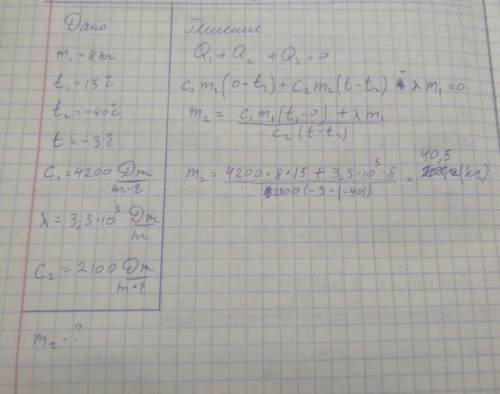 Дано
m₁ = 8 кг
t₁ = 15 °C
t₂ = -40 °C
t = -3 °C
C₁ = 4200 Дж/кг·°C
λ = 3,3·10⁵ Дж/кг
C₂ = 2100 Дж/кг·°C
m₂ - ?
Решение
Q₁ + Q₂ + Q₃ = 0
c₁m₁(0 - t₁) + c₂m₂(t - t₂) - λm₁ = 0
m₂ = c₁m₁(t₁ - 0) + λm₁ / c₂(t - t₂)
m₂ = 4200·8·15 + 3,3·10⁵·8 / 2100(-3-(-40)) = 40,5 (кг)